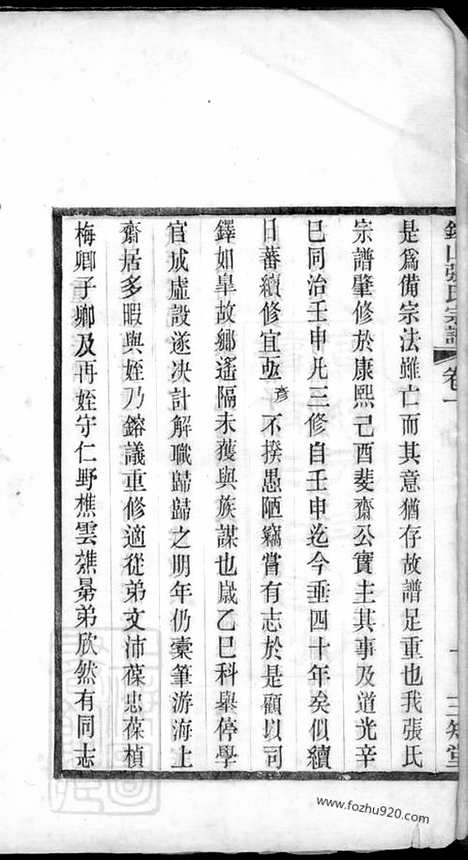 張氏宗譜 卷一
三知堂
是爲備宗法雖亡而其意猶存故譜是重也我張氏
宗譜肇修於康熙己酉斐齋公實主其事及道光辛
巳同治壬申凡三修自壬申迄今垂四十年矣似續
日蕃續修宜亟彥不揆愚陋竊嘗有志於是顧以司
鐸如臯故鄉遙隔未獲與族謀也歲乙巳科舉停學
官成虛設遂决計解職歸歸之明年仍橐筆游海上
齋居多暇與姪乃鎔議重修適從弟文沛葆忠葆楨
梅卿子卿及再姪守仁野樵雲樵晜弟欣然有同志
www.fozhu920.com